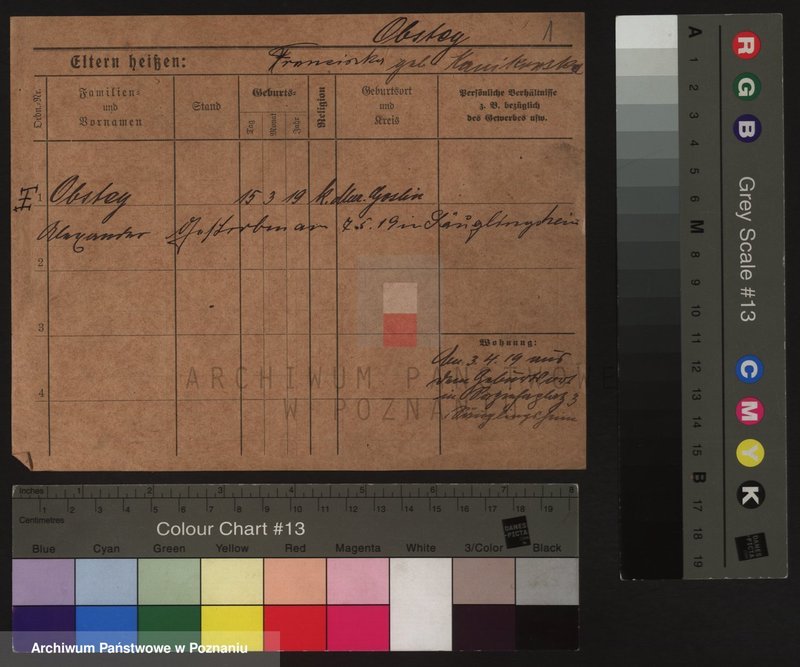 Obstoy 1
Eltern heißen: Franciska geb.
Ordn.-Nr.
Familien-
und
Vornamen
Stand
Geburts-
Tag
Monat
Jahr
Religion
Geburtsort
und
Kreis
Persönliche Verhältnisse
z. B. bezüglich
des Gewerbes usw.
1 Obstoy 15 3 19 k. Mur. Goslin
Alexander Gestorben am 7.5.19 in Säuglingsheim
2
3
Wohnung:
Am 3.4.19 aus
dem Geburtsort
in 3
Säuglingsheim
4
ARCHIWUM PAŃSTWOWE
W POZNANIU
Inches 1 2 3 4 5 6 7 8
Centimetres 1 2 3 4 5 6 7 8 9 10 11 12 13 14 15 16 17 18 19
Colour Chart #13
DANES
PICTA
Blue Cyan Green Yellow Red Magenta White 3/Color Black
Archiwum Państwowe w Poznaniu
A 1 2 3 4 5 6 M 8 9 10 11 12 13 14 15 B 17 18 19
R
G
B
Grey Scale #13
C
M
Y
K
DANES
PICTA